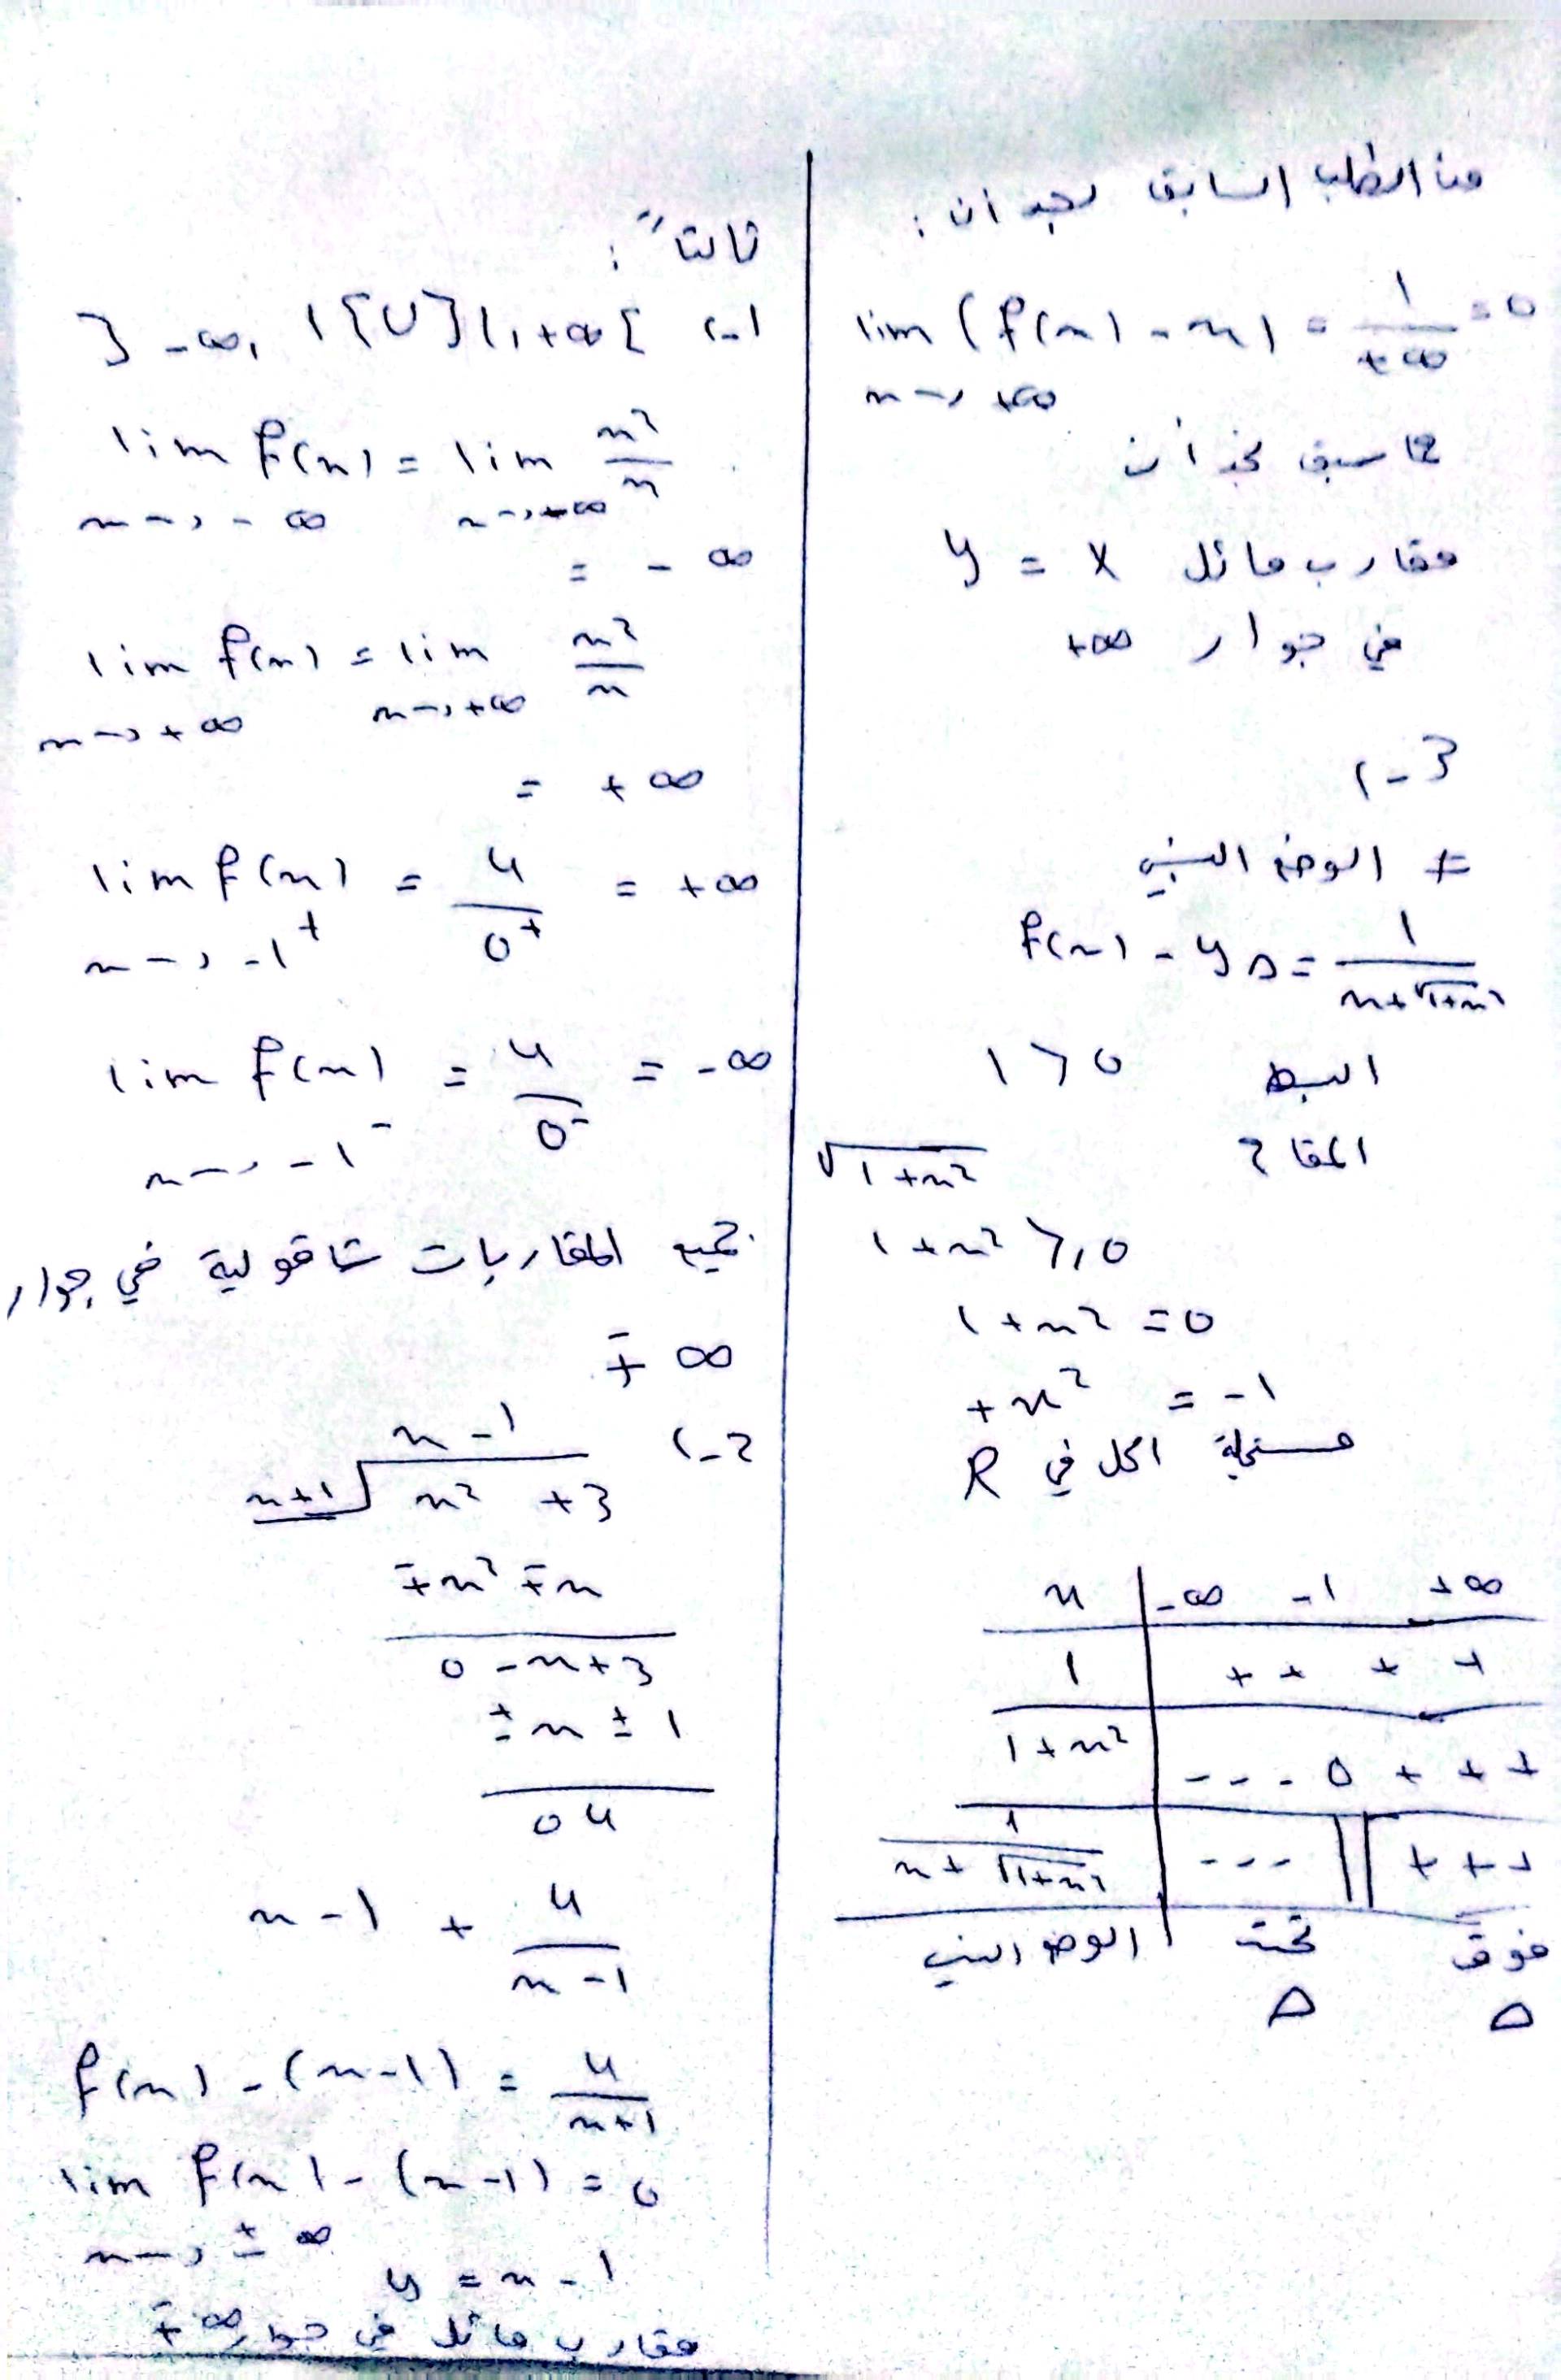 من الطلب السابق نجد أن :
lim (f(x) - x) = 1/+∞ = 0
x → +∞
مما سبق نجد أن
مقارب مائل y = x
في جوار +∞
3-)
≠ الوضع النسبي
f(x) - yΔ = 1/(x+√(1+x²))
البسط 1 > 0
المقام √(1+x²)
1+x² ≥ 0
1+x² = 0
+x² = -1
مستحيلة الحل في R
x | -∞ -1 +∞
1 | + + + +
1+x² | - - - 0 + + +
1/(x+√(1+x²)) | - - - || + + +
الوضع النسبي | تحت فوق
Δ Δ
ثالثاً :
1-) ]-∞, 1[∪]1, +∞[
lim f(x) = lim x²/x
x → -∞ x → +∞
= -∞
lim f(x) = lim x²/x
x → +∞ x → +∞
= +∞
lim f(x) = 4/0⁺ = +∞
x → -1⁺
lim f(x) = 4/0⁻ = -∞
x → -1⁻
جميع المقاربات شاقولية في جوار
∓∞
2-) x - 1
x+1 x² + 3
∓x² ∓x
0 - x + 3
± x ± 1
0 4
x - 1 + 4/(x-1)
f(x) - (x-1) = 4/(x+1)
lim f(x) - (x-1) = 0
x → ±∞
y = x - 1
مقارب مائل في جوار ∓∞